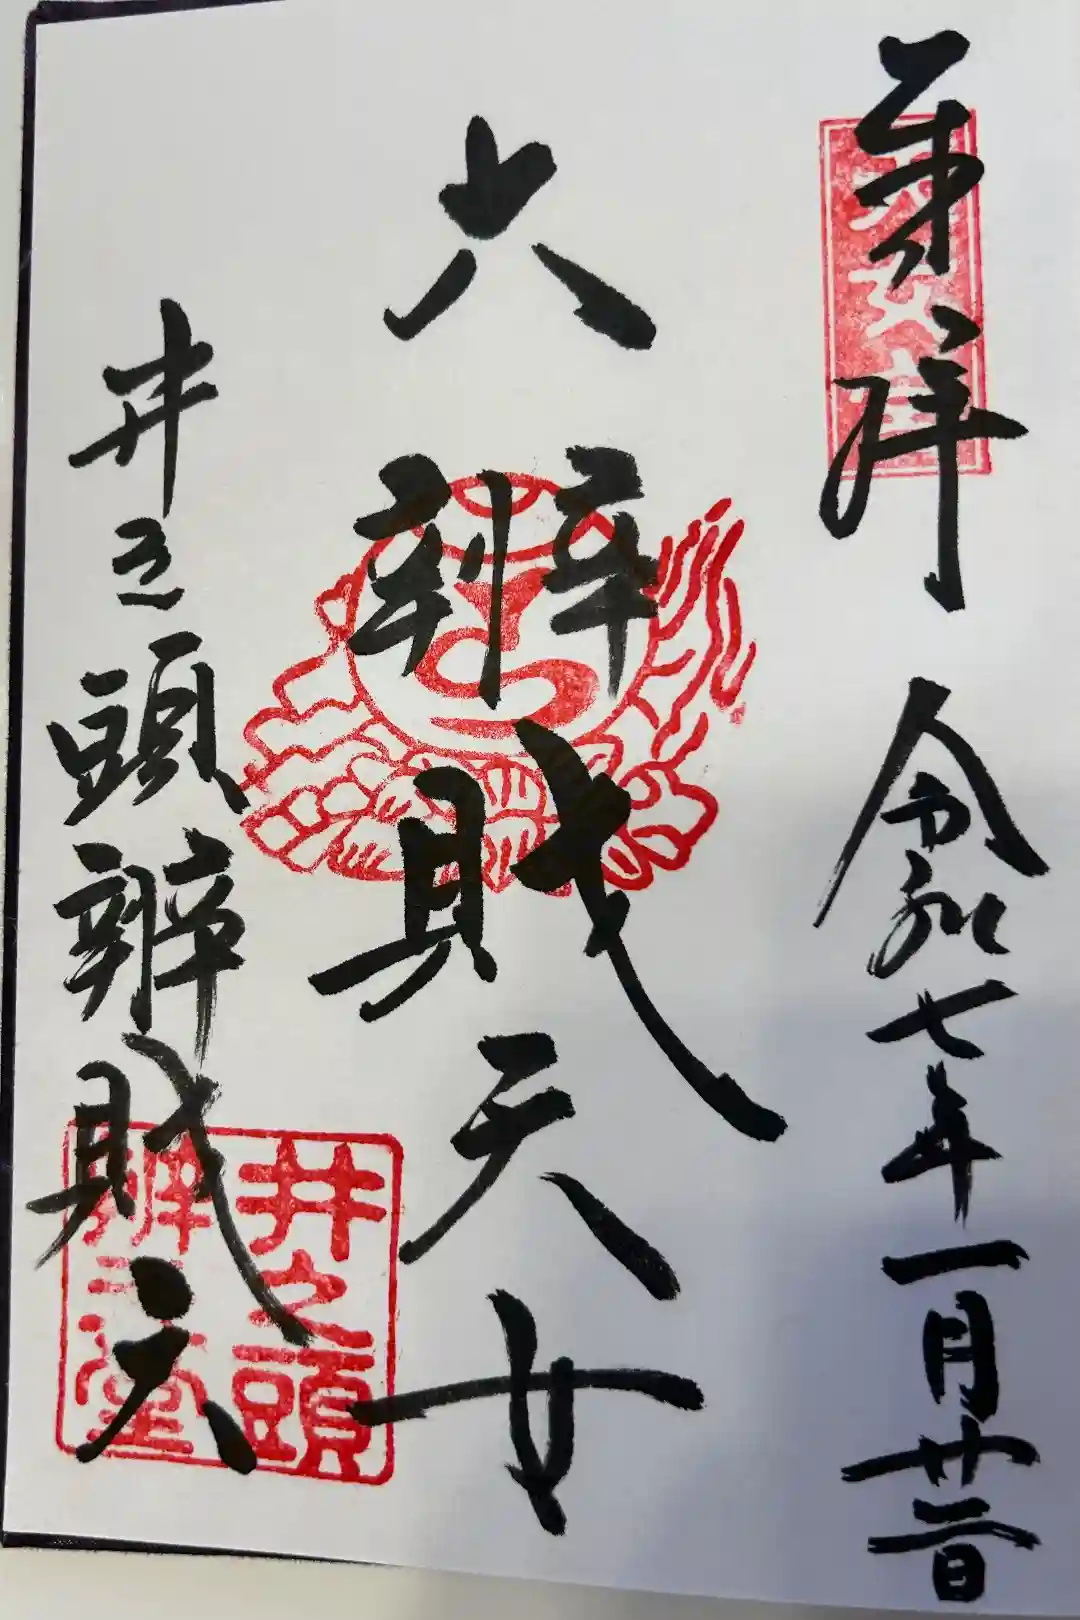 奉拝
令和七年一月廿二日
大辨財天女
井之頭辨財天
井之頭
辨天堂